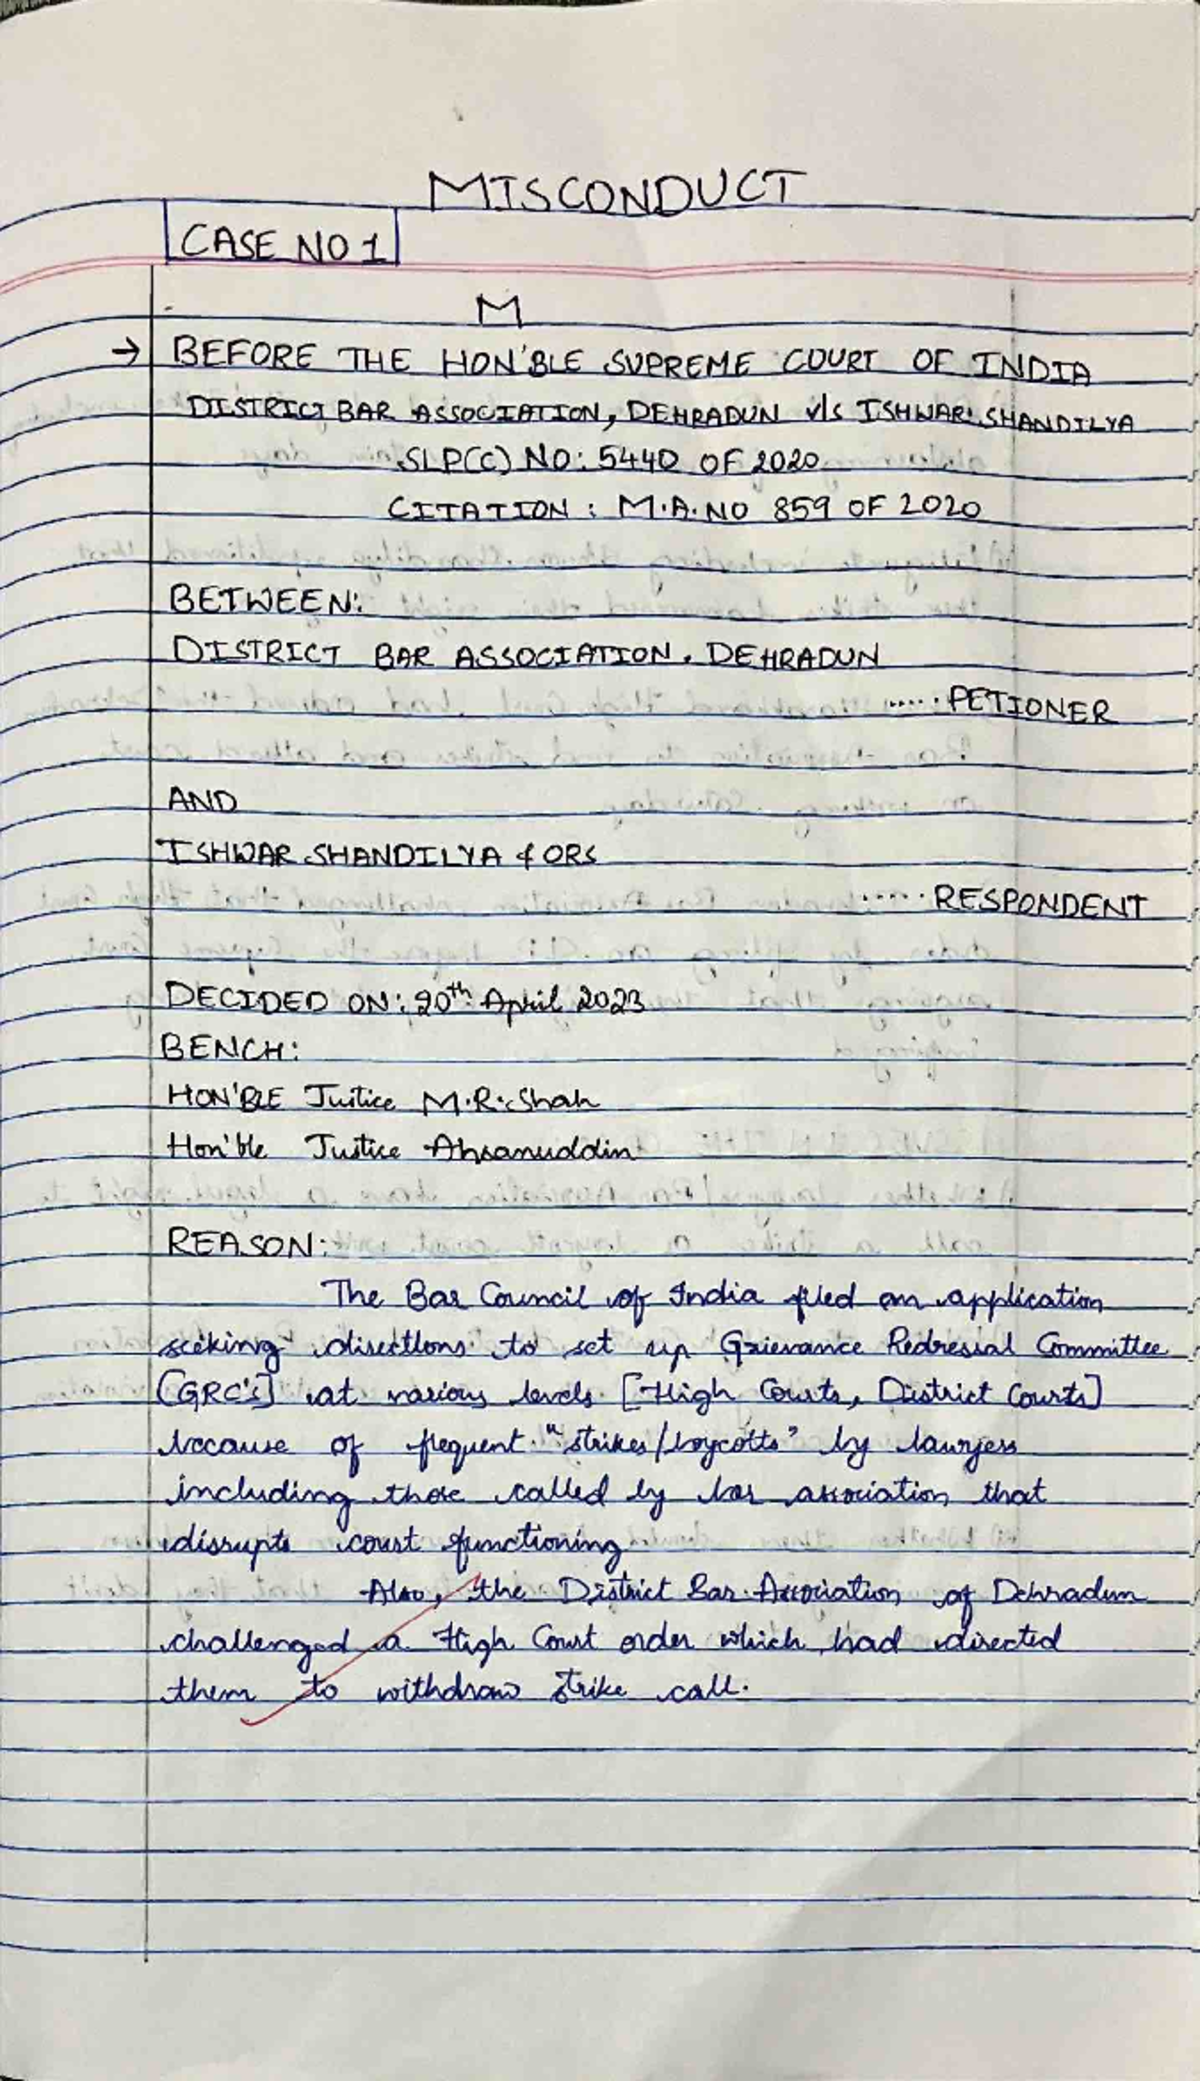 MISCONDUCT
CASE NO 1
M
→ BEFORE THE HON'BLE SUPREME COURT OF INDIA
DISTRICT BAR ASSOCIATION, DEHRADUN v/s ISHWAR SHANDILYA
SLP(C) NO: 5440 OF 2020
CITATION : M.A. NO 859 OF 2020
BETWEEN:
DISTRICT BAR ASSOCIATION, DEHRADUN
..... PETIONER
AND
ISHWAR SHANDILYA & ORS
..... RESPONDENT
DECIDED ON: 20th April 2023
BENCH:
HON'BLE Justice M.R. Shah
Hon'ble Justice Ahsanuddin
REASON:
The Bar Council of India filed an application
seeking directions to set up Grievance Redressal Committee
[GRC's] at various levels [High Courts, District Courts]
because of frequent "strikes/boycotts" by lawyers
including those called by bar association that
disrupts court functioning
Also, the District Bar Association of Dehradun
challenged a High Court order which had directed
them to withdraw strike call.